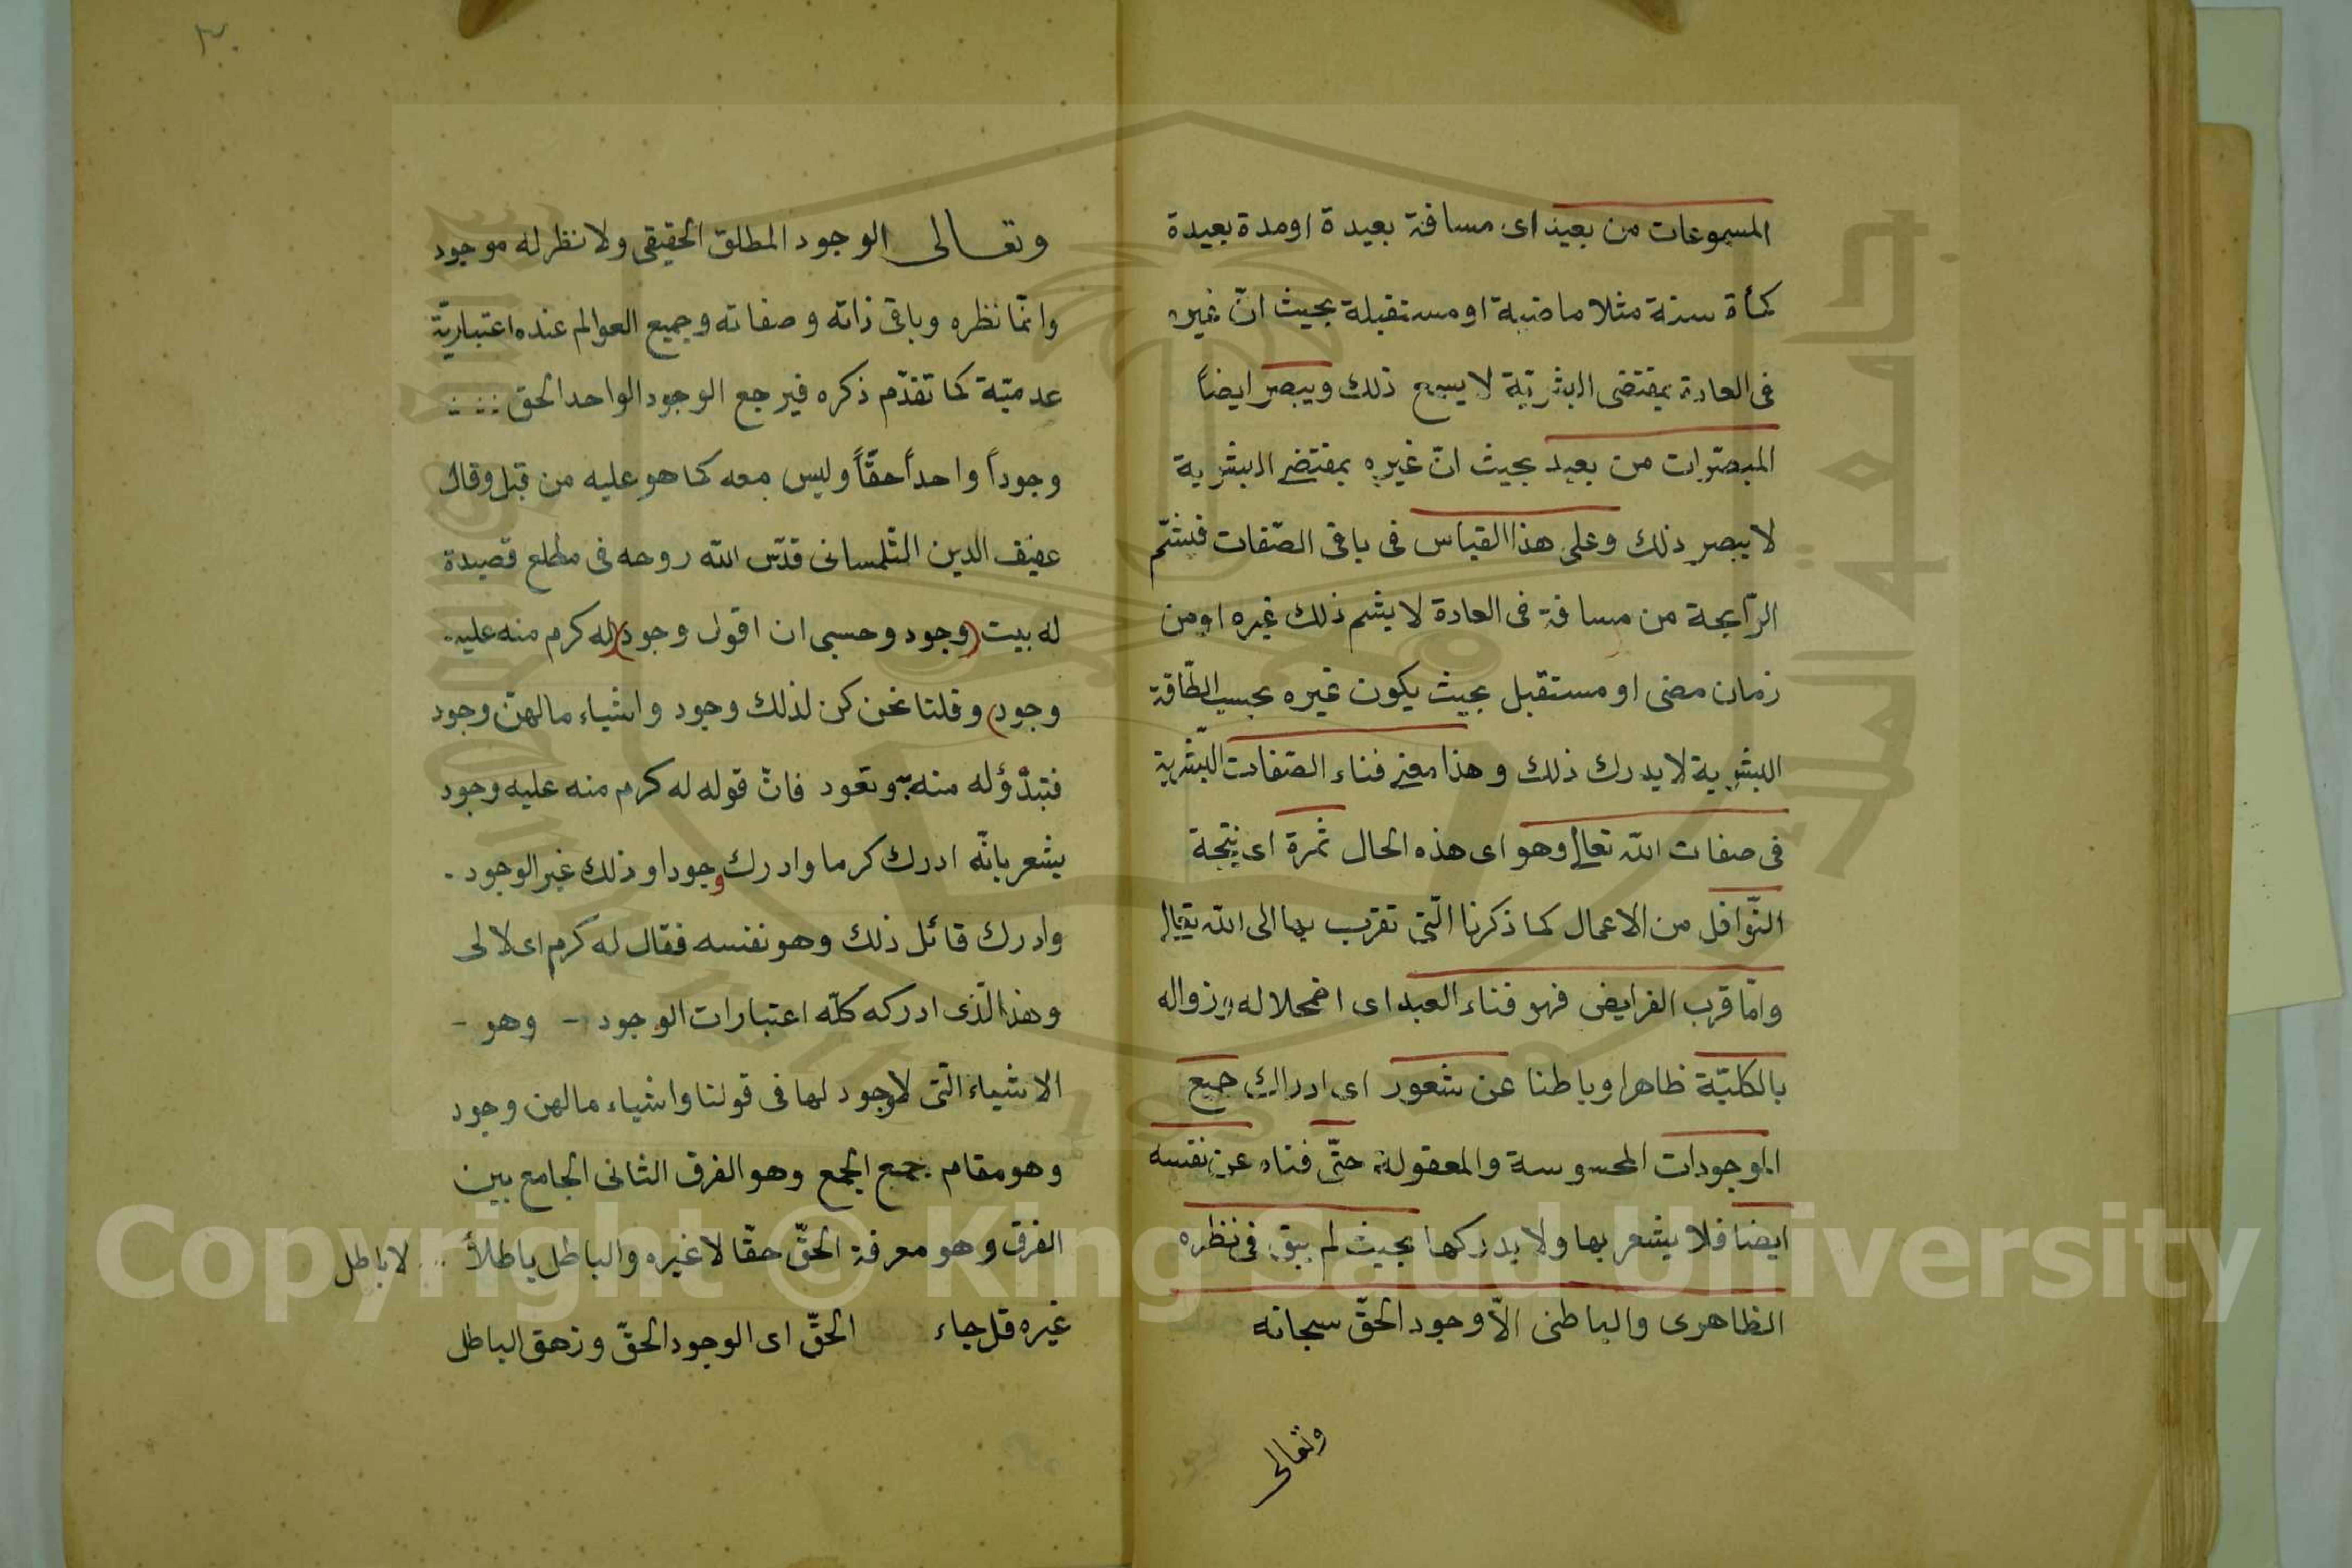 المسموعات من بعيد اى مسافة بعيدة او مدة بعيدة
كمأة سنة مثلا ماضية او مستقبلة بحيث انّ غيره
فى العادة بمقتضى البشريّة لا يسمع ذلك ويبصر ايضاً
المبصرات من بعيد بحيث انّ غيره بمقتضى البشرية
لا يبصر ذلك وعلى هذا القياس فى باقى الصّفات فيشمّ
الرّايحة من مسافة فى العادة لا يشم ذلك غيره او من
زمان مضى او مستقبل بحيث يكون غيره بحسب الطّاقة
البشرية لا يدرك ذلك وهذا معنى فناء الصّفات البشرية
فى صفات الله تعالى وهو اى هذه الحال ثمرة اى نتيجة
النّوافل من الاعمال كما ذكرنا الّتى تقرب بها الى الله تعالى
وامّا قرب الفرايض فهو فناء العبد اى اضمحلاله وزواله
بالكليّة ظاهرا وباطنا عن شعور اى ادراك جميع
الموجودات المحسوسة والمعقولة حتّى فناه عن نفسه
ايضا فلا يشعر بها ولا يدركها بحيث لم يبق فى نظره
الظاهرى والباطنى الّا وجود الحقّ سبحانه
وتعالى
٣
وتعالى الوجود المطلق الحقيقى ولا نظر له موجود
وانمّا نظره وباقى ذاته وصفاته وجميع العوالم عنده اعتباريّة
عدميّة كما تقدّم ذكره فيرجع الوجود الواحد الحق
وجوداً واحداً حقّاً وليس معه كما هو عليه من قبل وقال
عفيف الدين التّلمسانى قدّس الله روحه فى مطلع قصيدة
له بيت (وجود وحسبى ان اقول وجود)(له كرم منه عليه
وجود) وقلنا نحن كن لذلك وجود واشياء مالهنّ وجود
فتبدّؤ له منه وتعود فانّ قوله له كرم منه عليه وجود
يشعر بانّه ادرك كرما وادرك وجودا وذلك غير الوجود
وادرك قائل ذلك وهو نفسه فقال له كرم اى لا لى
وهذا الّذى ادركه كلّه اعتبارات الوجود - وهو -
الاشياء الّتى لا وجود لها فى قولنا واشياء مالهن وجود
وهو مقام جمع الجمع وهو الفرق الثانى الجامع بين
الفرق وهو معرفة الحقّ حقّا لا غيره والباطل باطلاً لا باطل
غيره قل جاء الحقّ اى الوجود الحقّ وزهق الباطل
Copyright © King Saud University